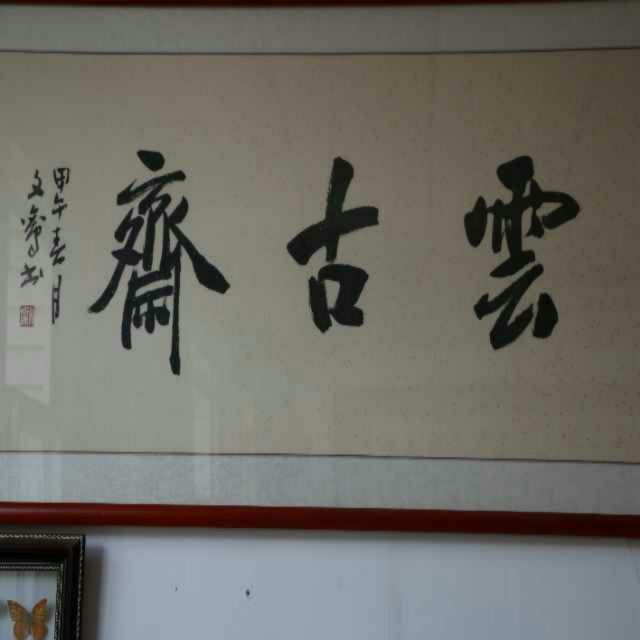 雲古齋
甲午春月
文峯书